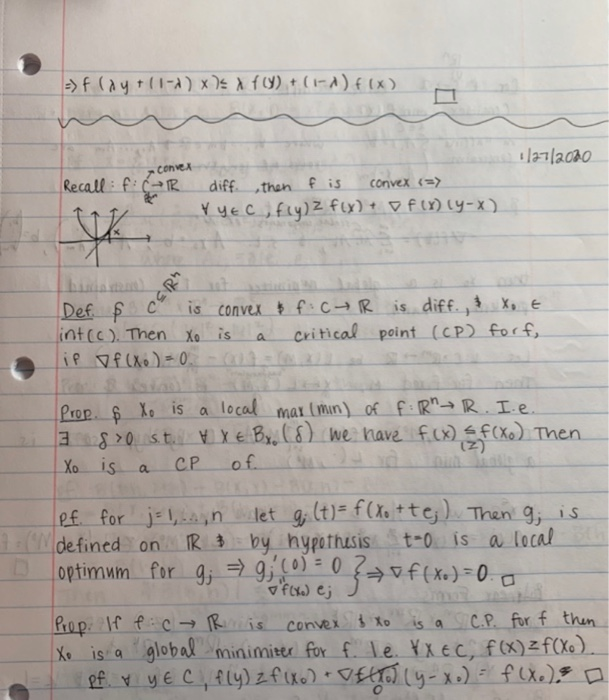 ⇒ f(λy + (1-λ)x) ≤ λ f(y) + (1-λ) f(x) □
1/27/2020
convex
Recall: f: C → ℝ diff., then f is convex <=>
∀ y ∈ C, f(y) ≥ f(x) + ∇f(x)(y-x)
x
⊆ ℝⁿ
Def. $ C is convex & f: C → ℝ is diff., & x₀ ∈
int(C). Then x₀ is a critical point (CP) for f,
if ∇f(x₀) = 0.
Prop. $ x₀ is a local max (min) of f: ℝⁿ → ℝ. I.e.
∃ δ > 0 s.t. ∀ x ∈ B_x₀(δ) we have f(x) ≤ f(x₀) Then
(≥)
x₀ is a CP of.
Pf. for j=1,...,n let gⱼ(t) = f(x₀ + teⱼ) Then gⱼ is
defined on ℝ & by hypothesis t=0 is a local
optimum for gⱼ ⇒ gⱼ'(0) = 0 } ⇒ ∇f(x₀) = 0. □
"
∇f(x₀) eⱼ
Prop. If f: C → ℝ is convex & x₀ is a C.P. for f then
x₀ is a global minimizer for f. I.e. ∀ x ∈ C, f(x) ≥ f(x₀).
pf. ∀ y ∈ C, f(y) ≥ f(x₀) + ∇f(x₀)(y-x₀) = f(x₀). □
0